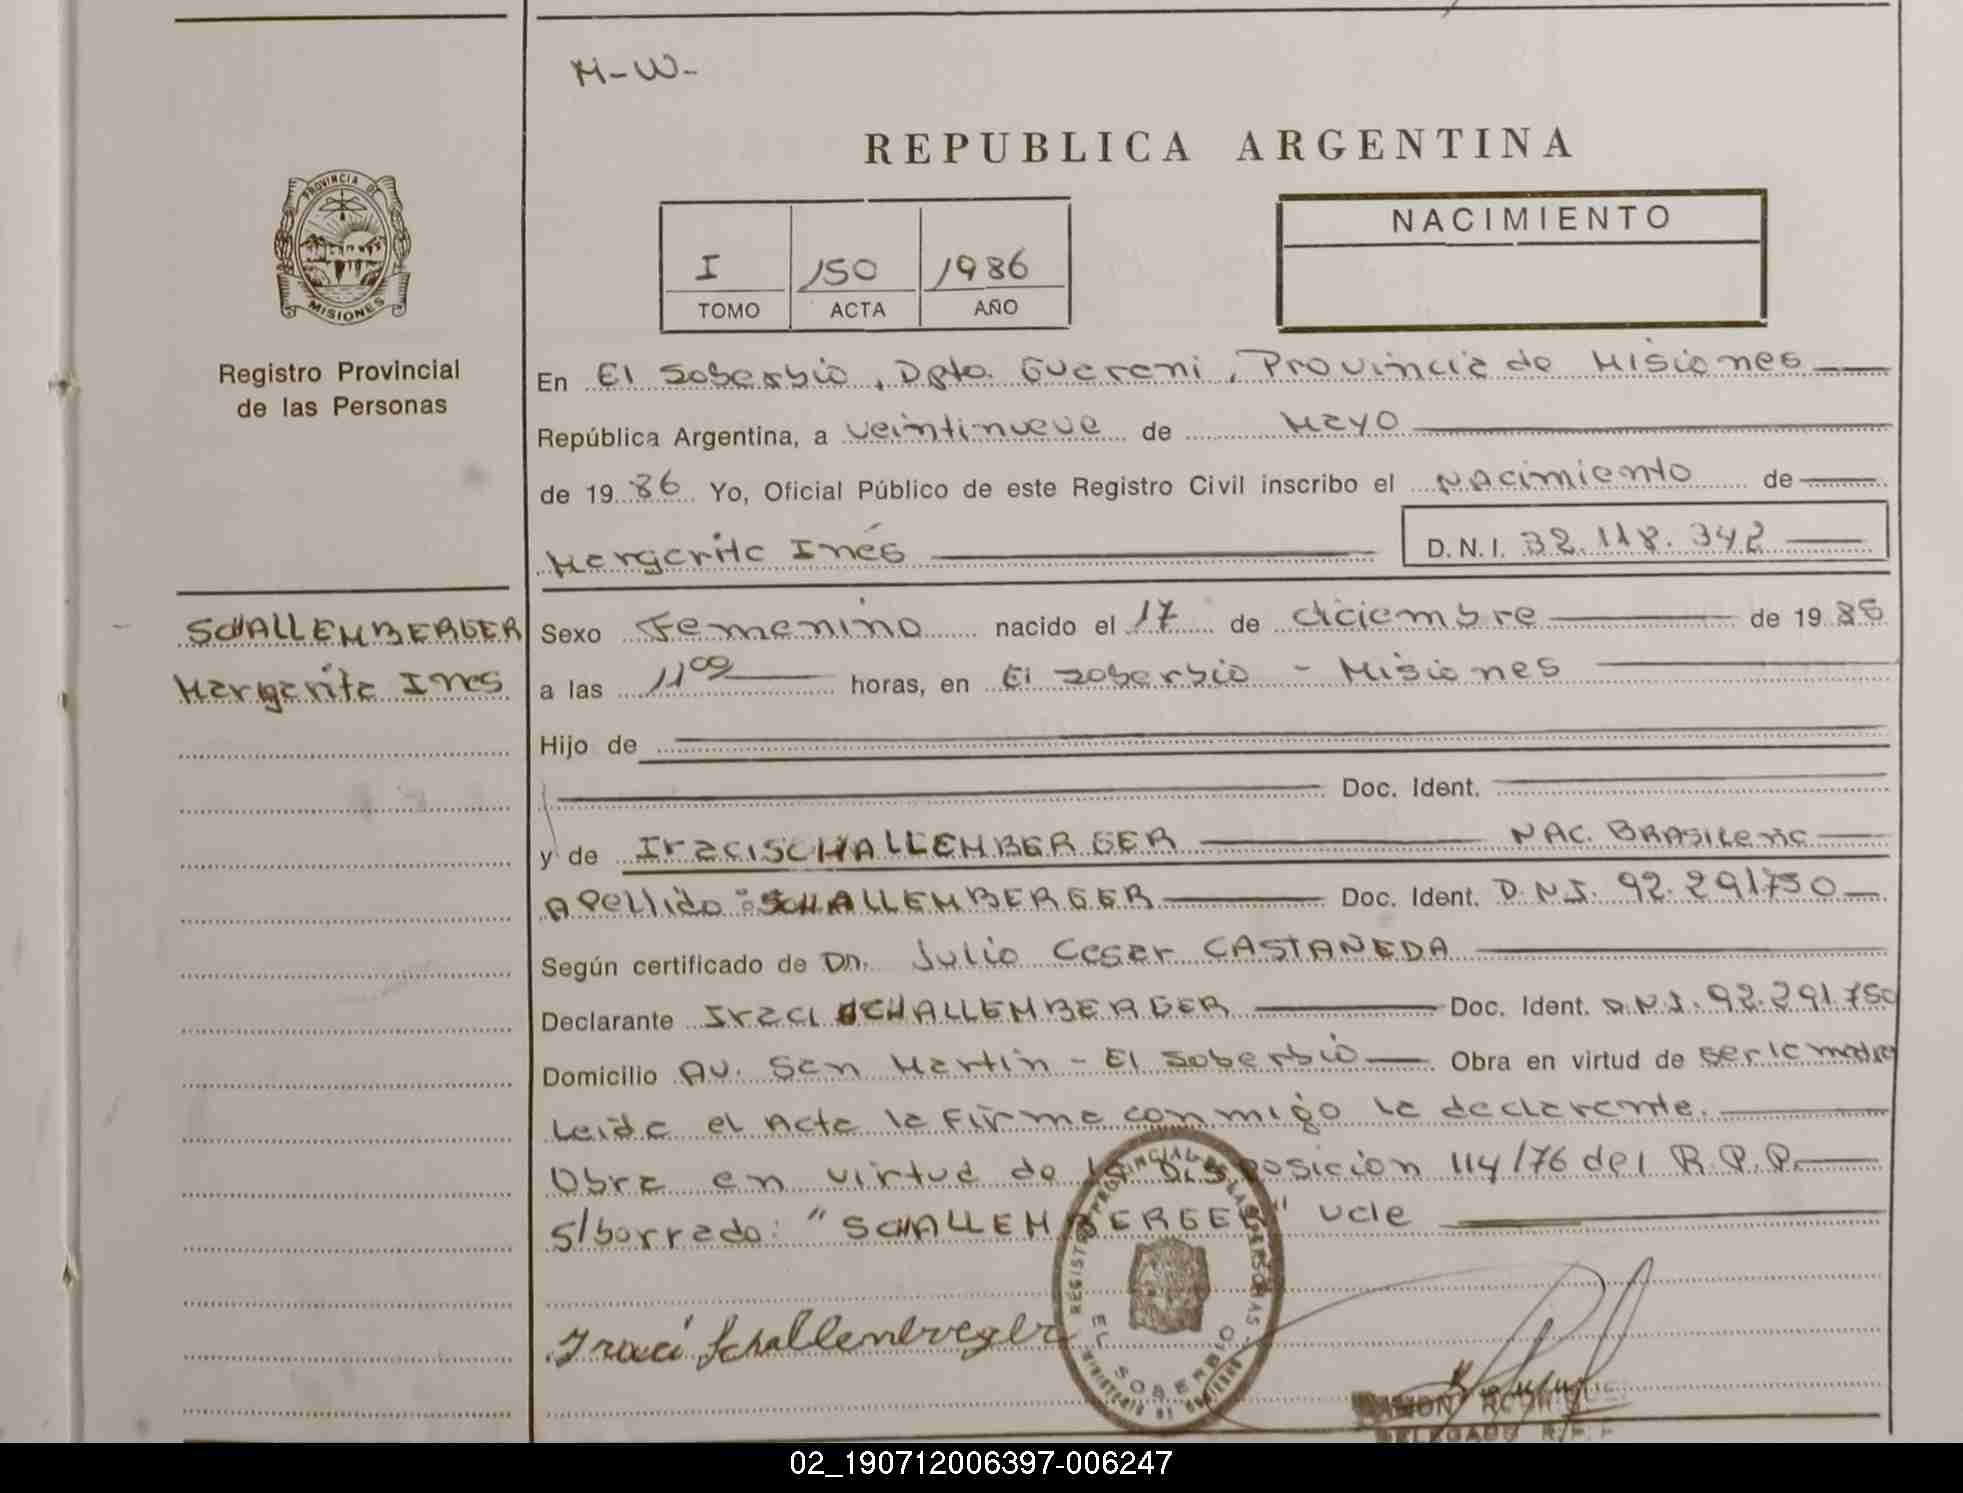 M-W-
REPUBLICA ARGENTINA
PROVINCIA DE
MISIONES
Registro Provincial
de las Personas
I 150 1986
TOMO ACTA AÑO
NACIMIENTO
En El Soberbio, Dpto. Guarani, Provincia de Misiones
República Argentina, a veintinueve de Mayo
de 19 86 Yo, Oficial Público de este Registro Civil inscribo el Nacimiento de
Margarita Inés D.N.I. 32.118.342
SCHALLEMBERGER
Margarita Ines
Sexo Femenino nacido el 17 de diciembre de 19 85
a las 11 00 horas, en El Soberbio - Misiones
Hijo de
Doc. Ident.
y de Iraci SCHALLEMBERGER NAC. BRASILeña
Apellido: SCHALLEMBERGER Doc. Ident. D.N.I. 92.291.750
Según certificado de Dn. Julio Cesar CASTAÑEDA
Declarante Iraci SCHALLEMBERGER Doc. Ident. D.N.I. 92.291.750
Domicilio AV. San Martin - El Soberbio Obra en virtud de ser la madre
Leida el Acta la Firma conmigo la declarante.
Obra en virtud de la Disposicion 114/76 del R.P.P.
S/borrado: "SCHALLEMBERGER" vale
Iraci Schallemberger
REGISTRO PROVINCIAL DE LAS PERSONAS
EL SOBERBIO
MINISTERIO DE GOBIERNO
RAMON
DELEGADO R.P.P.
02_190712006397-006247